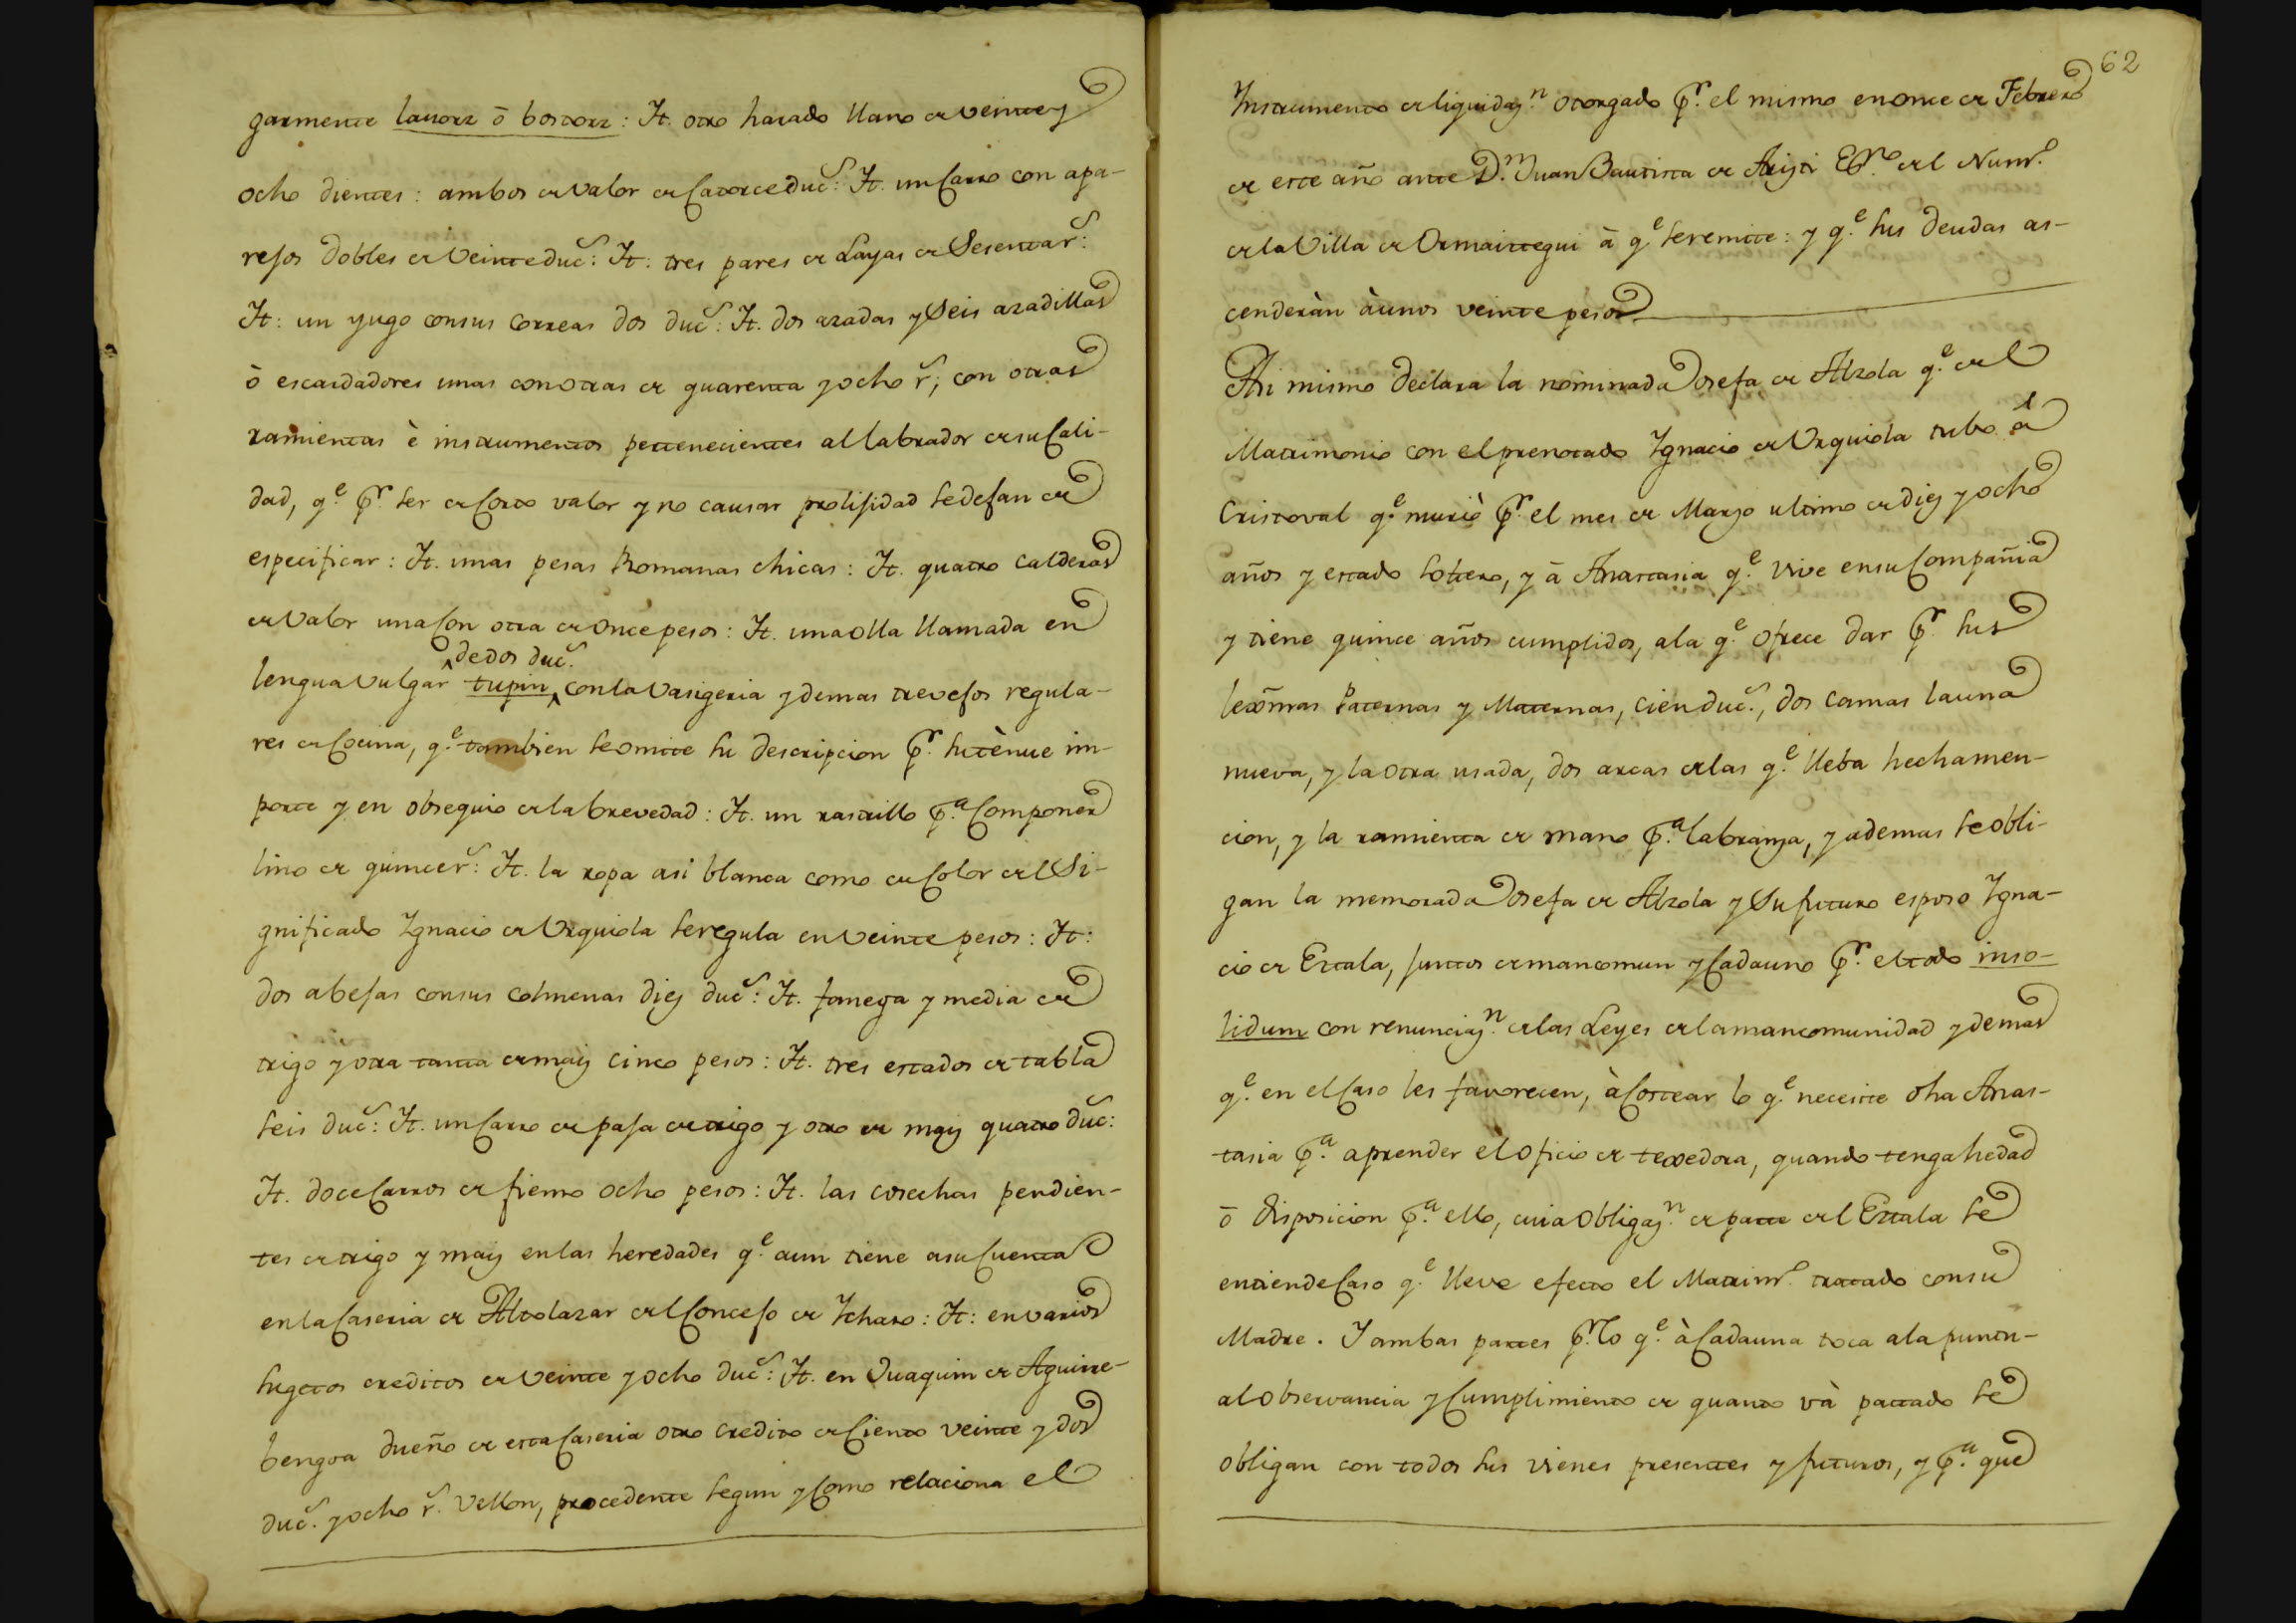 garmente lauorz ô bostorz: Yt. otro harado llano de veinte y
ocho dientes: ambos de valor de Catorce duc.s: Yt. un Carro con apa-
rejos dobles de Veinte duc.s: Yt: tres pares de Layas de Sesenta r.s:
Yt: un yugo consus Correas dos duc.s: Yt. dos azadas y Seis azadillas
ò escardadores unas conotras de quarenta y ocho r.s, con otras
ramientas è instrumentos pertenecientes al labrador de su Cali-
dad, q.e p.r ser de Corto valor y no causar prolijidad se dejan de
especificar: Yt. unas pesas Romanas chicas: Yt. quatro Calderas
de Valor una Con otra de Once pesos: Yt. una Olla llamada en
de dos duc.s
lengua Vulgar tupin, con la Vasigeria y demas trevejos regula-
res de Cocina, q.e tambien se omite su descripcion p.r su tènue im-
porte y en obsequio de la brevedad: Yt. un rastrillo p.a Componer
lino de quince r.s: Yt. la ropa asi blanca como de Color del Si-
gnificado Ygnacio de Urquiola se regula en Veinte pesos: Yt:
dos abejas consus colmenas diez duc.s: Yt. fanega y media de
trigo y otra tanta de maiz cinco pesos: Yt. tres estados de tabla
seis duc.s: Yt. un Carro de paja de trigo y otro de maiz quatro duc.s:
Yt. doce Carros de fiemo ocho pesos: Yt. las cosechas pendien-
tes de trigo y maiz en las heredades q.e aun tiene a su Cuenta
en la Caseria de Altolazar del Concejo de Ychaso: Yt: en varios
sugetos creditos de Veinte y ocho duc.s: Yt. en Juaquin de Aguirre-
bengoa dueño de esta Caseria otro credito de Ciento veinte y dos
duc.s y ocho r.s Vellon, procedente segun y Como relaciona el
62
Ynstrumento de liquidaz.n otorgado p.r el mismo en once de Febrero
de este año ante D.n Juan Bautista de Arizti Ess.no del Num.o
de la Villa de Ormaiztegui à q.e se remite: y q.e sus deudas as-
cenderàn à unos veinte pesos
Asi mismo declara la nominada Josefa de Alzola q.e del
Matrimonio con el prenotado Ygnacio de Urquiola tubo â
Cristoval q.e muriò p.r el mes de Marzo ultimo de diez y ocho
años y estado soltero, y â Anastasia q.e vive en su Compañia
y tiene quince años cumplidos, a la q.e ofrece dar p.r sus
lexmas Paternas y Maternas, cien duc.s, dos camas la una
nueva, y la otra usada, dos arcas de las q.e lleba hecha men-
cion, y la ramienta de mano p.a labranza, y ademas se obli-
gan la memorada Josefa de Alzola y Su futuro esposo Ygna-
cio de Eztala, juntos de mancomun y Cada uno p.r el todo inso-
lidum con renunciaz.n de las Leyes de la mancomunidad y demas
q.e en el Caso les favorecen, à Costear lo q.e necesite dha Anas-
tasia p.a aprender el oficio de texedora, quando tenga hedad
ò disposicion p.a ello, cuia Obligaz.n de parte del Eztala se
entiende Caso q.e lleve efecto el Matrim.o tratado consu
Madre. Y ambas partes p.r lo q.e à Cada una toca a la puntu-
al observancia y Cumplimiento de quanto và pactado se
obligan con todos sus vienes presentes y futuros, y p.a que